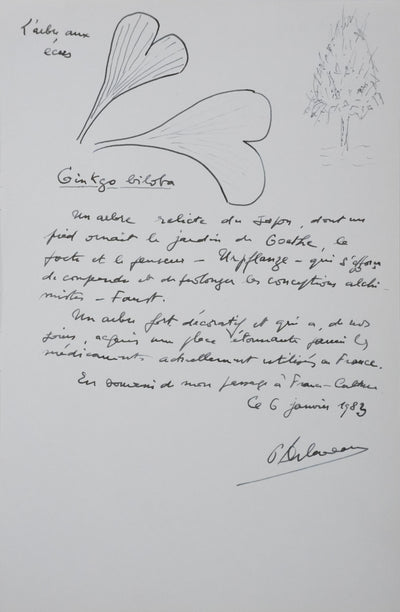 L'arbre aux
écus
Ginkgo biloba
Un arbre relicte du Japon, dont un
pied ornait le jardin de Goethe, le
poète et le penseur - Urpflanze - qui s'efforça
de comprendre et de prolonger les conceptions alchi-
mistes - Faust.
Un arbre fort décoratif et qui a, de nos
jours, acquis une place étonnante parmi les
médicaments actuellement utilisés en France.
En souvenir de mon passage à France-Culture
Ce 6 janvier 1983
P Delaveau